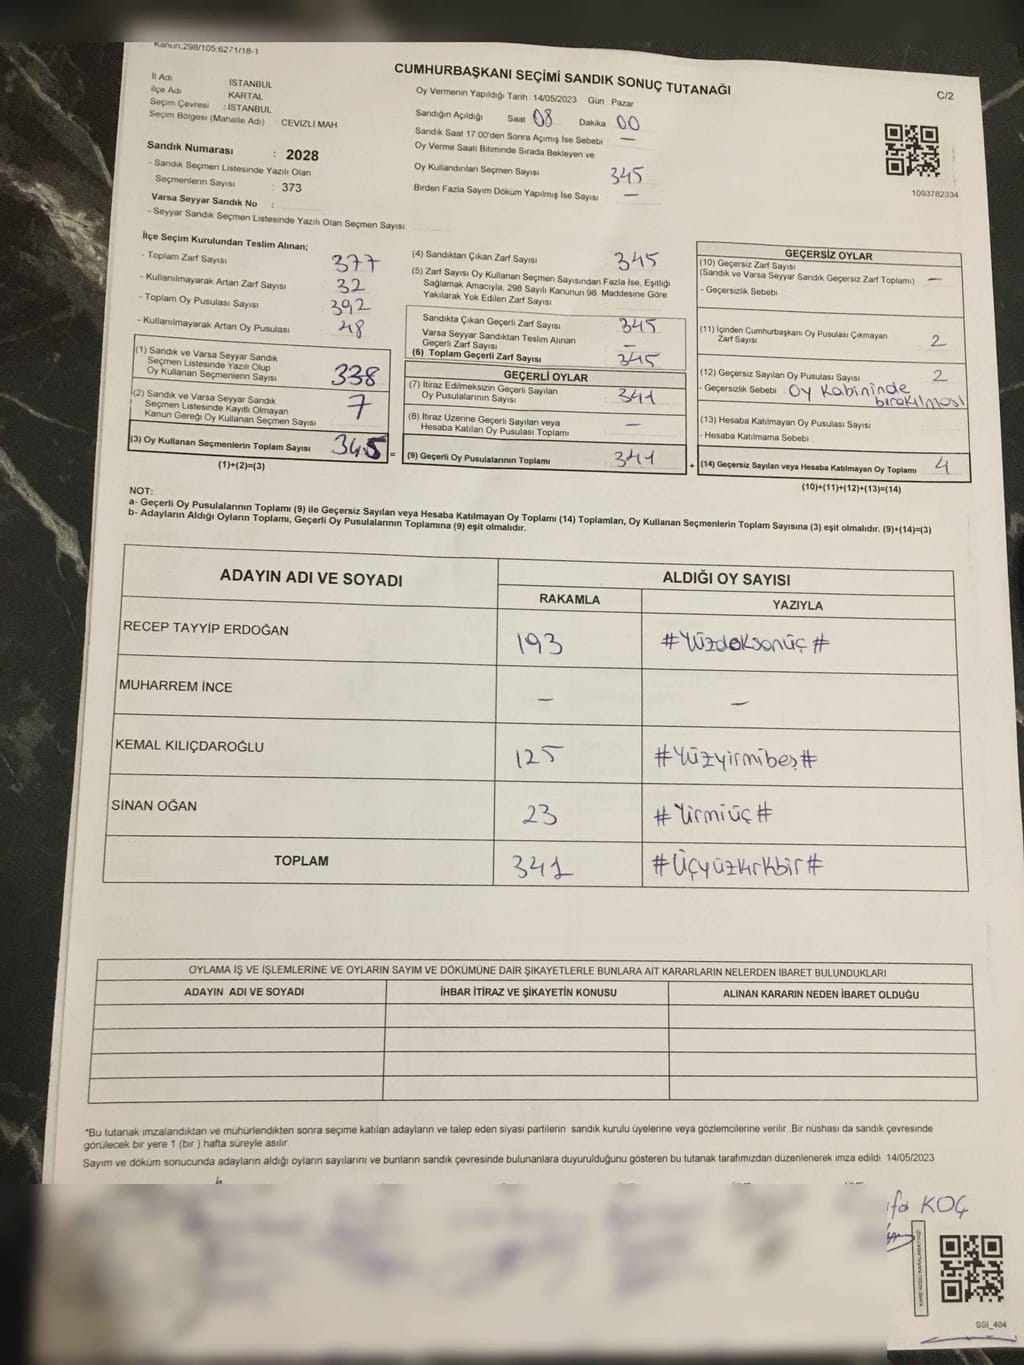 Kanun;298/105;6271/18-1
CUMHURBAŞKANI SEÇİMİ SANDIK SONUÇ TUTANAĞI
C/2
İl Adı İSTANBUL
İlçe Adı KARTAL
Seçim Çevresi : İSTANBUL
Seçim Bölgesi (Mahalle Adı) CEVİZLİ MAH
Sandık Numarası : 2028
- Sandık Seçmen Listesinde Yazılı Olan
Seçmenlerin Sayısı : 373
Varsa Seyyar Sandık No :
- Seyyar Sandık Seçmen Listesinde Yazılı Olan Seçmen Sayısı:
Oy Vermenin Yapıldığı Tarih 14/05/2023 Gün Pazar
Sandığın Açıldığı Saat 08 Dakika 00
Sandık Saat 17:00'den Sonra Açımış İse Sebebi —
Oy Verme Saati Bitiminde Sırada Bekleyen ve
Oy Kullandırılan Seçmen Sayısı 345
Birden Fazla Sayım Döküm Yapılmış İse Sayısı —
1093782334
İlçe Seçim Kurulundan Teslim Alınan;
- Toplam Zarf Sayısı 377
- Kullanılmayarak Artan Zarf Sayısı 32
- Toplam Oy Pusulası Sayısı 392
- Kullanılmayarak Artan Oy Pusulası 48
(1) Sandık ve Varsa Seyyar Sandık
Seçmen Listesinde Yazılı Olup
Oy Kullanan Seçmenlerin Sayısı 338
(2) Sandık ve Varsa Seyyar Sandık
Seçmen Listesinde Kayıtlı Olmayan
Kanun Gereği Oy Kullanan Seçmen Sayısı 7
(3) Oy Kullanan Seçmenlerin Toplam Sayısı 345 =
(1)+(2)=(3)
(4) Sandıktan Çıkan Zarf Sayısı 345
(5) Zarf Sayısı Oy Kullanan Seçmen Sayısından Fazla İse, Eşitliği
Sağlamak Amacıyla, 298 Sayılı Kanunun 98. Maddesine Göre
Yakılarak Yok Edilen Zarf Sayısı
Sandıkta Çıkan Geçerli Zarf Sayısı 345
Varsa Seyyar Sandıktan Teslim Alınan
Geçerli Zarf Sayısı —
(6) Toplam Geçerli Zarf Sayısı 345
GEÇERLİ OYLAR
(7) İtiraz Edilmeksizin Geçerli Sayılan
Oy Pusulalarının Sayısı 341
(8) İtiraz Üzerine Geçerli Sayılan veya
Hesaba Katılan Oy Pusulası Toplamı —
(9) Geçerli Oy Pusulalarının Toplamı 341 +
GEÇERSİZ OYLAR
(10) Geçersiz Zarf Sayısı
(Sandık ve Varsa Seyyar Sandık Geçersiz Zarf Toplamı) —
- Geçersizlik Sebebi
(11) İçinden Cumhurbaşkanı Oy Pusulası Çıkmayan
Zarf Sayısı 2
(12) Geçersiz Sayılan Oy Pusulası Sayısı 2
- Geçersizlik Sebebi Oy Kabininde
bırakılması
(13) Hesaba Katılmayan Oy Pusulası Sayısı
- Hesaba Katılmama Sebebi
(14) Geçersiz Sayılan veya Hesaba Katılmayan Oy Toplamı 4
(10)+(11)+(12)+(13)=(14)
NOT:
a- Geçerli Oy Pusulaları (9) ile Geçersiz Sayılan veya Hesaba Katılmayan Oy Toplamı (14) Toplamları, Oy Kullanan Seçmenlerin Toplam Sayısına (3) eşit olmalıdır. (9)+(14)=(3)
b- Adayların Aldığı Oyların Toplamı, Geçerli Oy Pusulalarının Toplamına (9) eşit olmalıdır.
ADAYIN ADI VE SOYADI ALDIĞI OY SAYISI
RAKAMLA YAZIYLA
RECEP TAYYİP ERDOĞAN 193 #Yüzdoksanüç#
MUHARREM İNCE — —
KEMAL KILIÇDAROĞLU 125 #Yüzyirmibeş#
SİNAN OĞAN 23 #Yirmiüç#
TOPLAM 341 #Üçyüzkırkbir#
OYLAMA İŞ VE İŞLEMLERİNE VE OYLARIN SAYIM VE DÖKÜMÜNE DAİR ŞİKAYETLERLE BUNLARA AİT KARARLARIN NELERDEN İBARET BULUNDUKLARI
ADAYIN ADI VE SOYADI İHBAR İTİRAZ VE ŞİKAYETİN KONUSU ALINAN KARARIN NEDEN İBARET OLDUĞU
*Bu tutanak imzalandıktan ve mühürlendikten sonra seçime katılan adayların ve talep eden siyasi partilerin sandık kurulu üyelerine veya gözlemcilerine verilir. Bir nüshası da sandık çevresinde
görülecek bir yere 1 (bir ) hafta süreyle asılır.
Sayım ve döküm sonucunda adayların aldığı oyların sayılarını ve bunların sandık çevresinde bulunanlara duyurulduğunu gösteren bu tutanak tarafımızdan düzenlenerek imza edildi. 14/05/2023
KOÇ
SSI_404